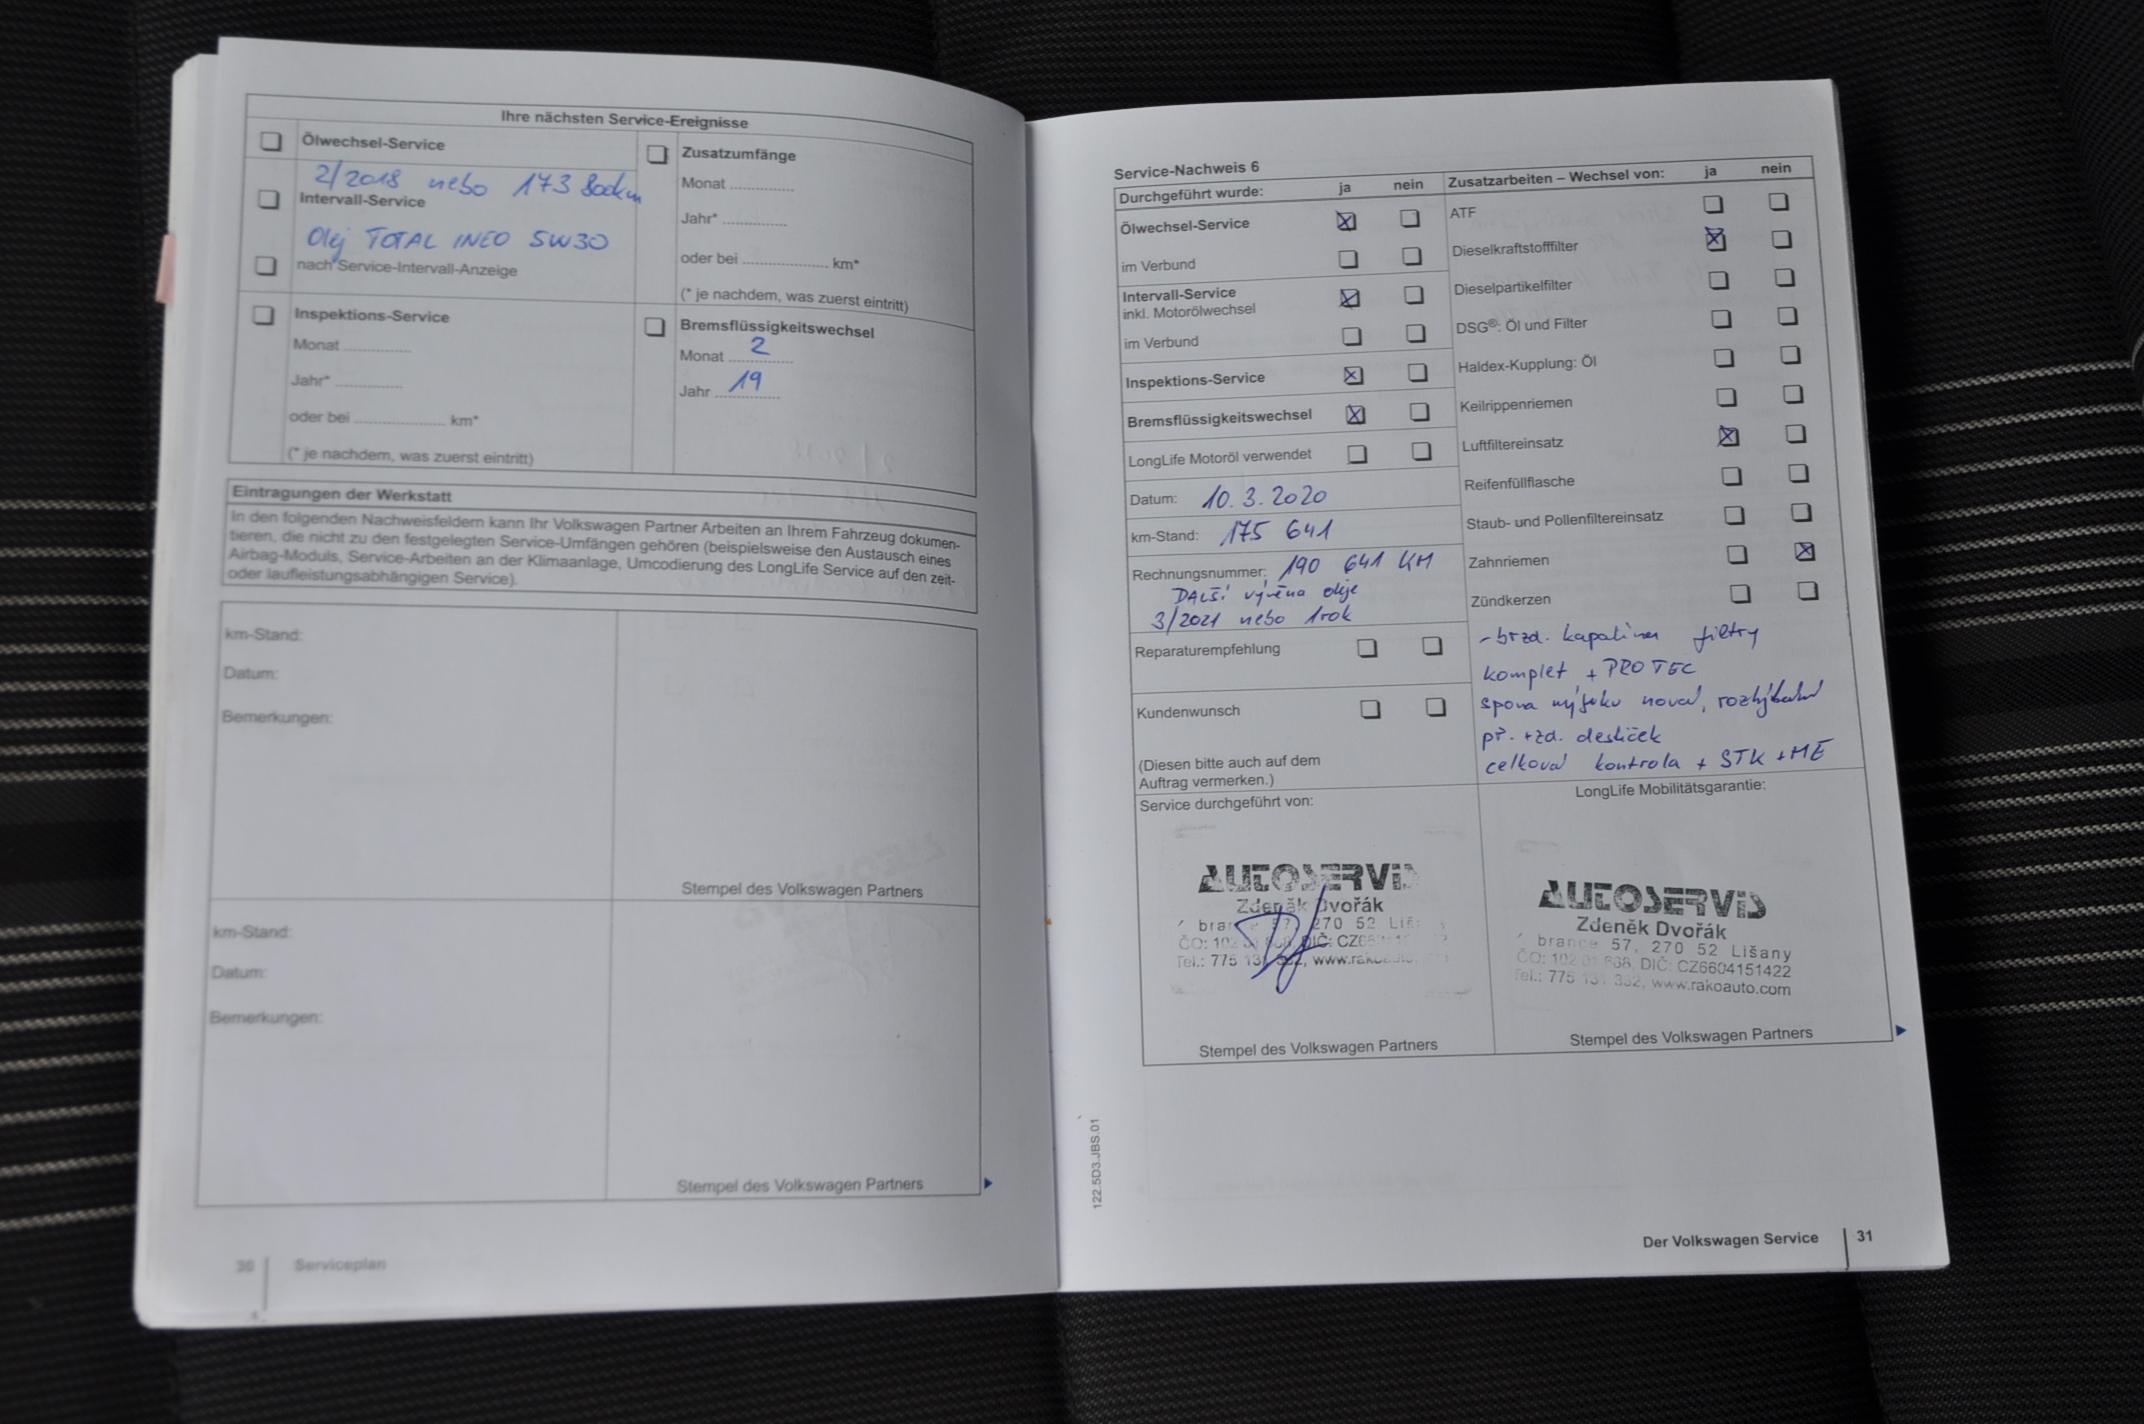 Ihre nächsten Service-Ereignisse
Ölwechsel-Service
2/2018 nebo 173 800km
Intervall-Service
Olej TOTAL INEO 5W30
nach Service-Intervall-Anzeige
Zusatzumfänge
Monat
Jahr*
oder bei km*
(* je nachdem, was zuerst eintritt)
Inspektions-Service
Monat
Jahr*
oder bei km*
(* je nachdem, was zuerst eintritt)
Bremsflüssigkeitswechsel
Monat 2
Jahr 19
Eintragungen der Werkstatt
In den folgenden Nachweisfeldern kann Ihr Volkswagen Partner Arbeiten an Ihrem Fahrzeug dokumen-
tieren, die nicht zu den festgelegten Service-Umfängen gehören (beispielsweise den Austausch eines
Airbag-Moduls, Service-Arbeiten an der Klimaanlage, Umcodierung des LongLife Service auf den zeit-
oder laufleistungsabhängigen Service).
km-Stand:
Datum:
Bemerkungen:
Stempel des Volkswagen Partners
km-Stand:
Datum:
Bemerkungen:
Stempel des Volkswagen Partners
30 Serviceplan
Service-Nachweis 6
Durchgeführt wurde: ja nein
Ölwechsel-Service
im Verbund
Intervall-Service
inkl. Motorölwechsel
im Verbund
Inspektions-Service
Bremsflüssigkeitswechsel
LongLife Motoröl verwendet
Datum: 10.3.2020
km-Stand: 175 641
Rechnungsnummer: 190 641 KM
DALŠÍ výměna oleje
3/2021 nebo 1rok
Reparaturempfehlung
Kundenwunsch
(Diesen bitte auch auf dem
Auftrag vermerken.)
Zusatzarbeiten – Wechsel von: ja nein
ATF
Dieselkraftstofffilter
Dieselpartikelfilter
DSG®: Öl und Filter
Haldex-Kupplung: Öl
Keilrippenriemen
Luftfiltereinsatz
Reifenfüllflasche
Staub- und Pollenfiltereinsatz
Zahnriemen
Zündkerzen
- brzd. kapalina filtry
komplet + PROTEC
spona výfuku nová, rozhýbání
př. + zd. destiček
celková kontrola + STK + ME
Service durchgeführt von:
AUTOSERVIS
Zdeněk Dvořák
57, 270 52
DIČ:
Tel.: 775
Stempel des Volkswagen Partners
LongLife Mobilitätsgarantie:
AUTOSERVIS
Zdeněk Dvořák
brance 57, 270 52 Lišany
DIČ: CZ6604151422
Tel.: 775 131 332, www.rakoauto.com
Stempel des Volkswagen Partners
122.5D3.JBS.01
Der Volkswagen Service 31